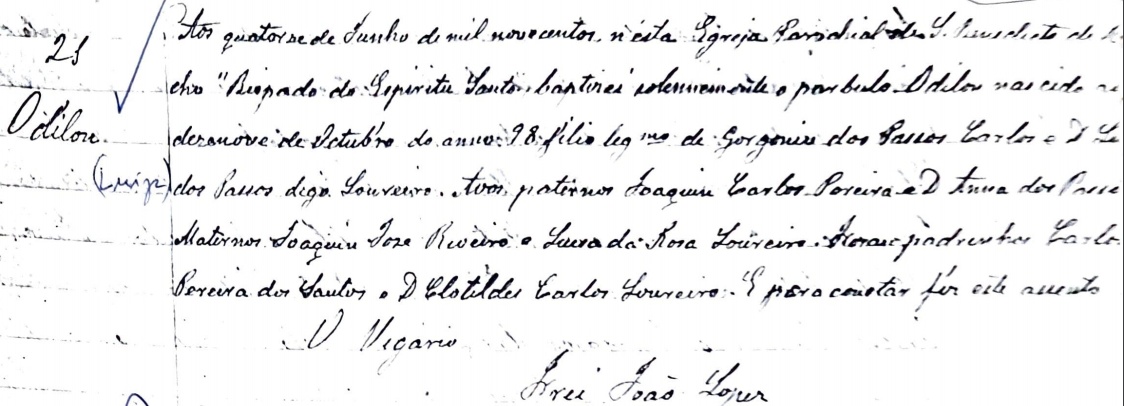 21
Odilon
(Luiz)
Aos quatorse de Junho de mil novecentos, n'ésta Egreja Parochial de S. Benedicto do
cho "Riopado do Espiritu Santo, baptizei solennemente o parbulo Odilon nascido
dezanove de Octubro do anno 98 filio leg mo de Gorgoniu dos Passos Carlos e D
dos Passos digo Loureiro. Avos paternos Joaquin Carlos Pereira e D Anna dos Passo
Maternos Joaquin Jose Riveiro e Luisa da Rosa Loureiro. Foram padrinhos Carlo
Pereira dos Santos e D Clotildes Carlos Loureiro. E para constar fiz este assento
O Vigario
Frei João Lopez